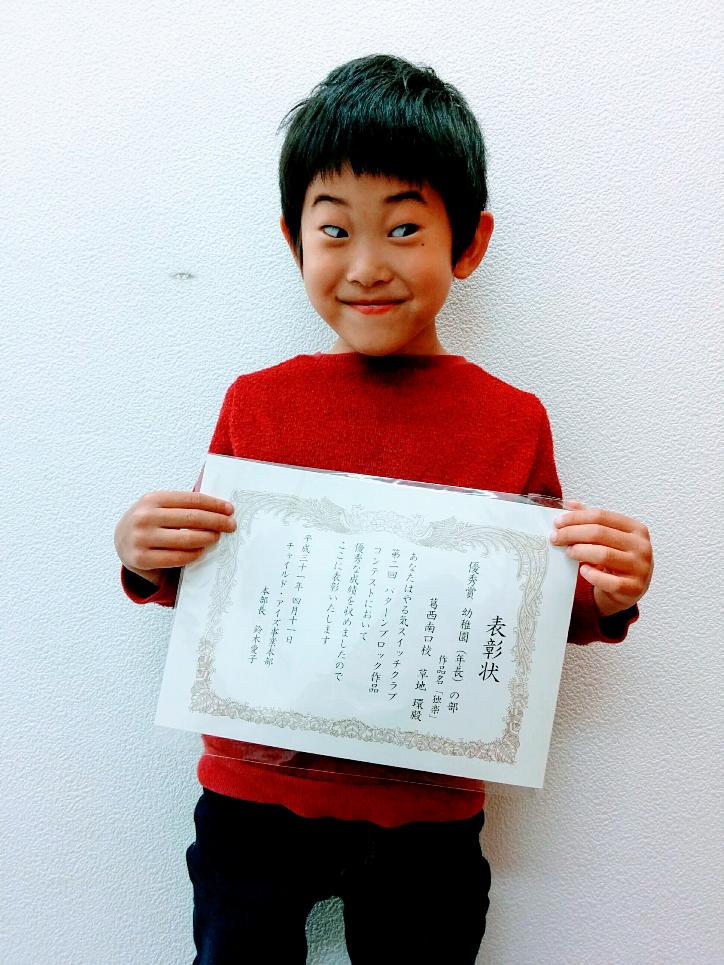 表彰状
優秀賞 幼稚園（年長）の部
作品名「独楽」
葛西南口校 草地 環殿
あなたはやる気スイッチクラブ
第二回 パターンブロック作品
コンテストにおいて
優秀な成績を収めましたので
ここに表彰いたします
平成三十一年 四月十一日
チャイルド・アイズ事業本部
本部長 鈴木愛子